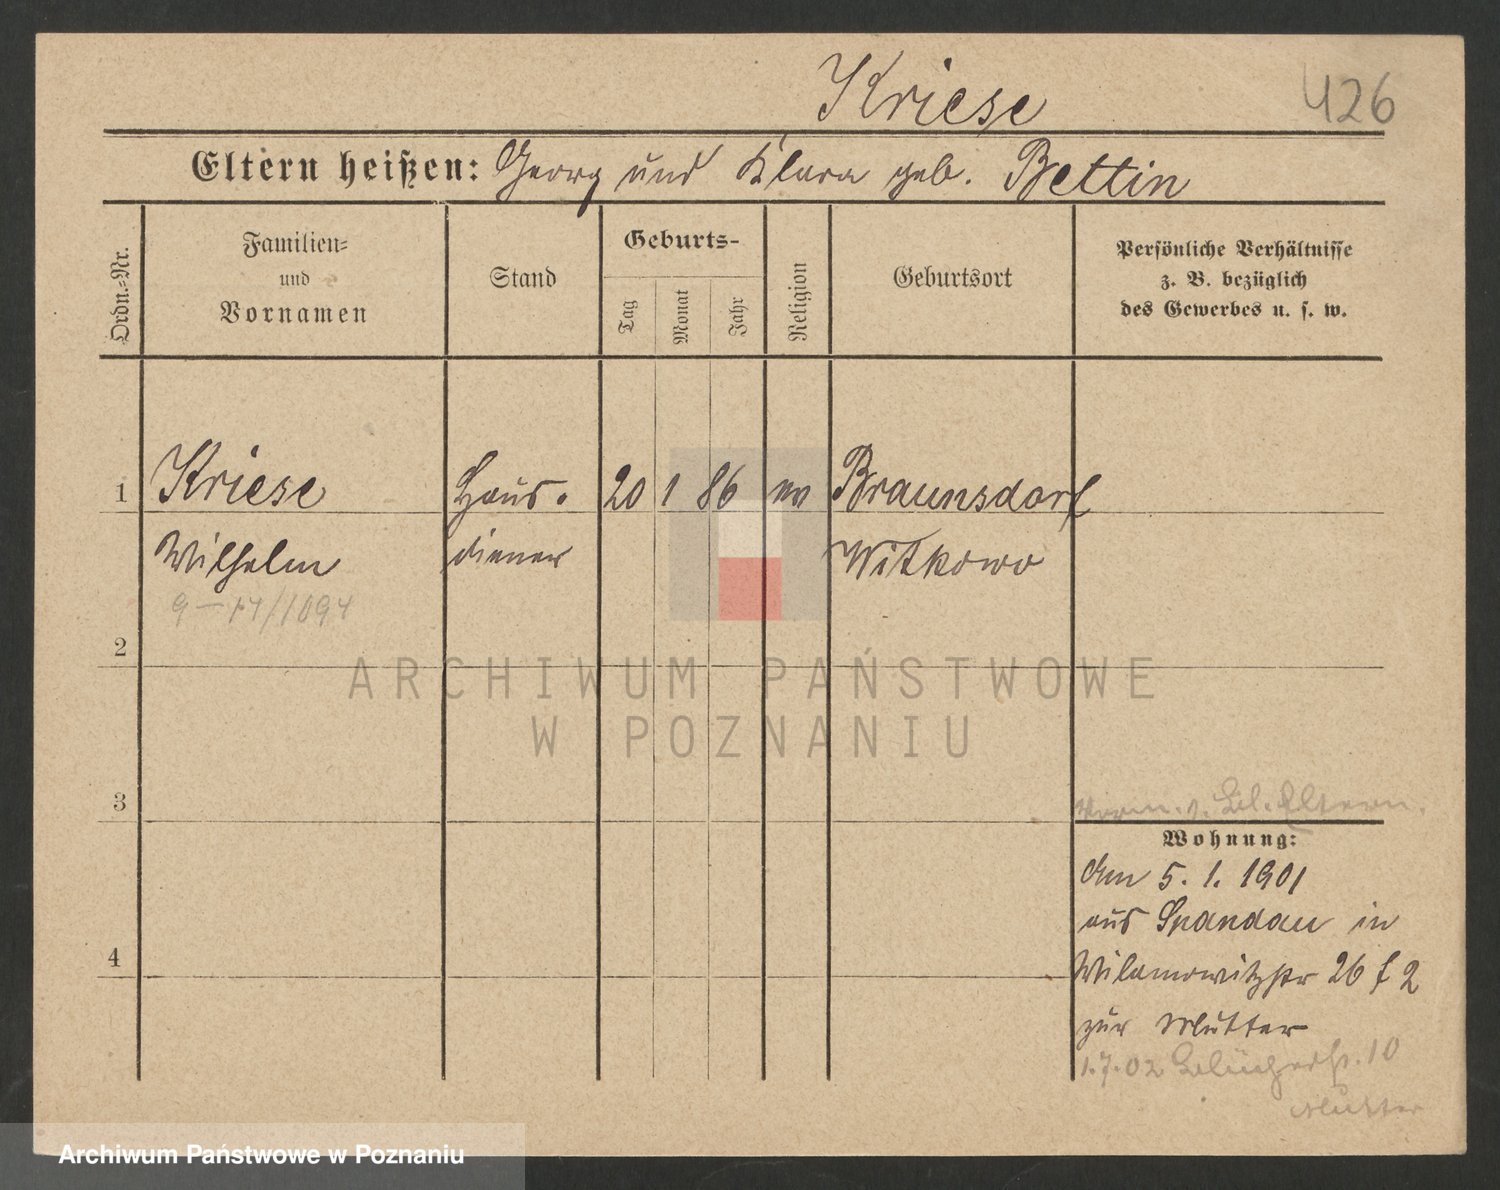 Kriese
426
Eltern heißen: Georg und Klara geb. Bettin
Ordn.-Nr.
Familien-
und
Vornamen
Stand
Geburts-
Tag
Monat
Jahr
Religion
Geburtsort
Persönliche Verhältnisse
z. B. bezüglich
des Gewerbes u. s. w.
1 Kriese Haus- 20 1 86 ev Braunsdorf
Wilhelm diener Witkowo
9-14/1094
2
ARCHIWUM PAŃSTWOWE
W POZNANIU
3
Eltern.
Wohnung:
Am 5. 1. 1901
aus Spandau in
4
Wilamowitzstr 26 f 2
zur Mutter
1.7.02 Blücherstr. 10
Mutter
Archiwum Państwowe w Poznaniu